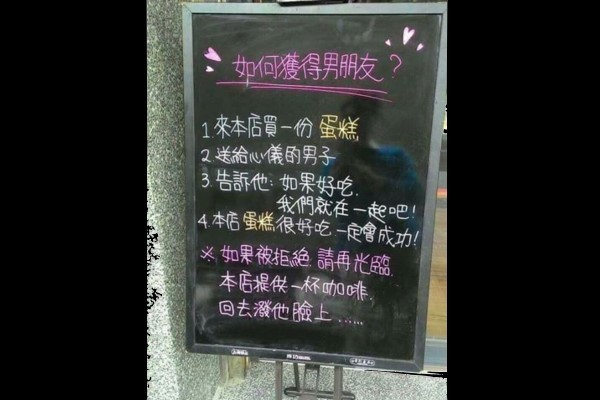 如何獲得男朋友？
1.來本店買一份 蛋糕
2.送給心儀的男子
3.告訴他：如果好吃，
我們就在一起吧！
4.本店蛋糕很好吃，一定會成功！
※如果被拒絕，請再光臨，
本店提供一杯咖啡，
回去潑他臉上……